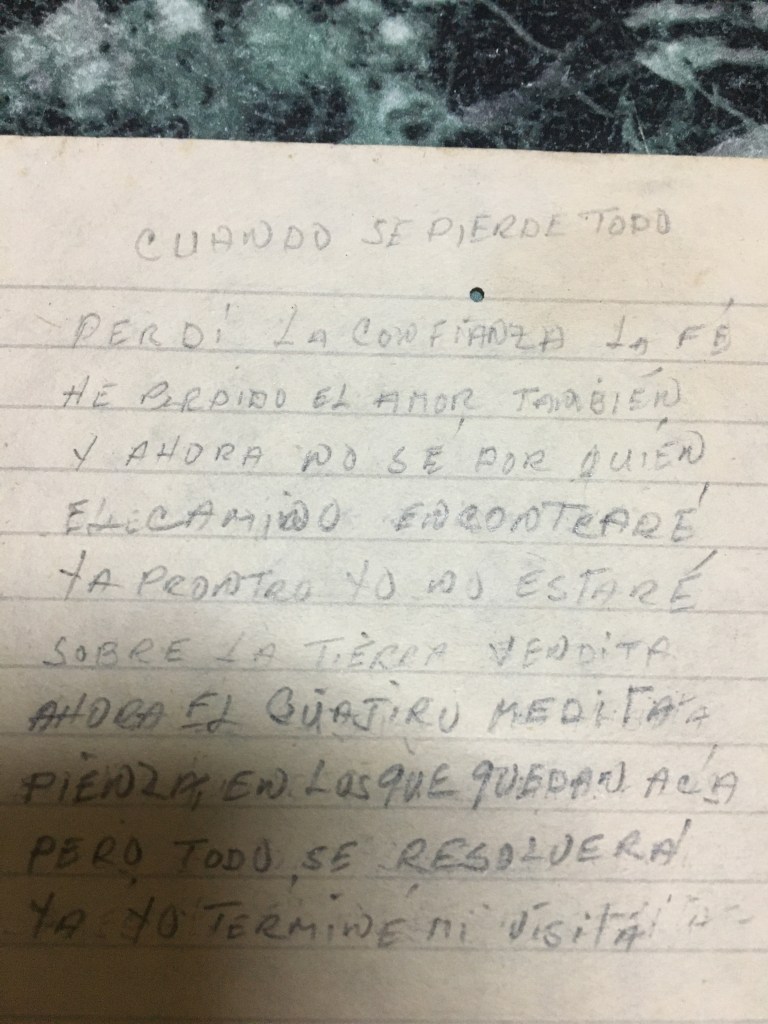 CUANDO SE PIERDE TODO
PERDÍ LA CONFIANZA LA FÉ
HE PERDIDO EL AMOR TAMBIÉN
Y AHORA NO SÉ POR QUIÉN
EL CAMINO ENCONTRARÉ
YA PRONTRO YO NO ESTARÉ
SOBRE LA TIERRA VENDITA
AHORA EL GUAJIRO MEDITA
PIENZA, EN LOS QUE QUEDAN ACÁ
PERO TODO SE RESOLVERÁ
YA YO TERMINÉ MI VISITA